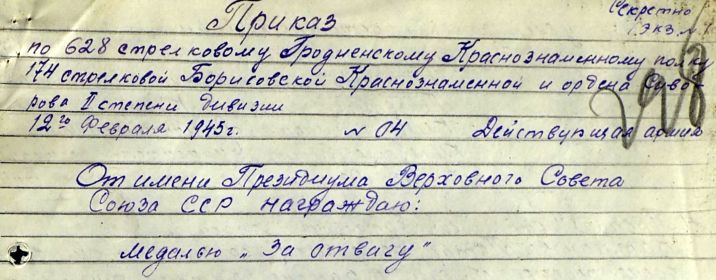 Секретно
Экз. №1
Приказ
по 628 стрелковому Гродненскому Краснознаменному полку
174 стрелковой Борисовской Краснознаменной и ордена Суво-
рова II степени дивизии
12го Февраля 1945г. № 04 Действующая армия
От имени Президиума Верховного Совета
Союза ССР награждаю:
медалью „За отвагу"